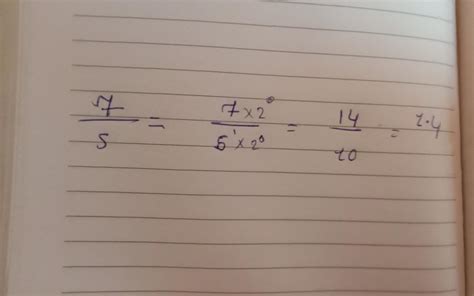 7/5 = 7×2⁰/5¹×2⁰ = 14/10 = 1.4